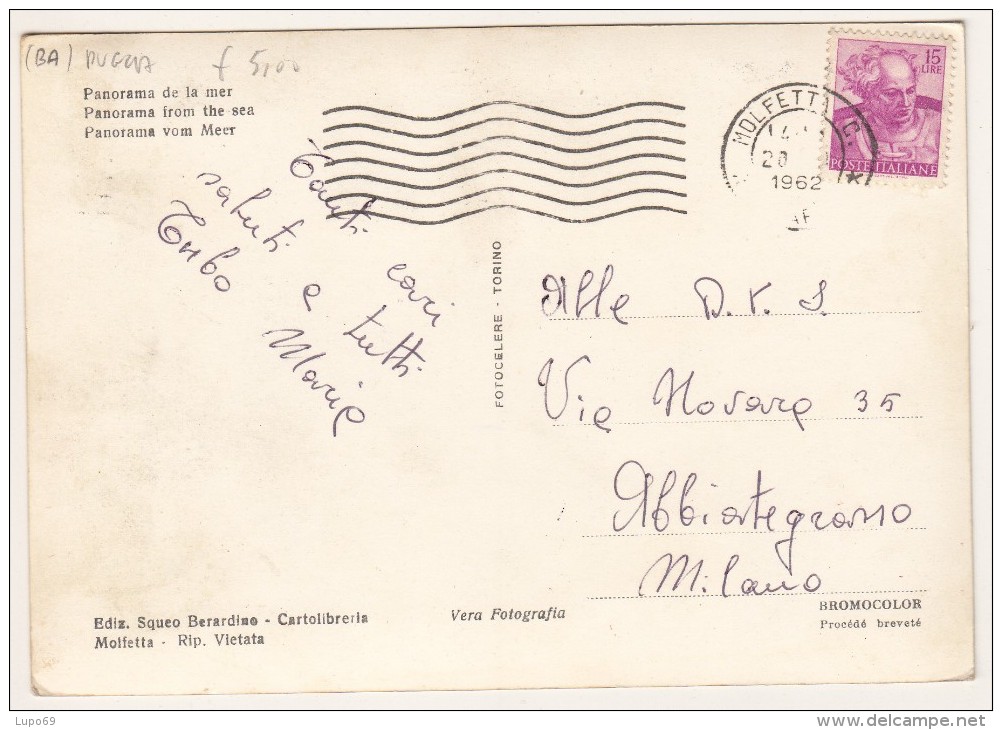 (BA) PUGLIA £ 5,00
Panorama de la mer
Panorama from the sea
Panorama vom Meer
15
LIRE
POSTE ITALIANE
MOLFETTA C.
20
1962
Tanti cari
saluti a tutti
Marie
FOTOCELERE - TORINO
Alle D. V. S.
Via Novara 35
Abbiategrasso
Milano
Ediz. Squeo Berardino - Cartolibreria
Molfetta - Rip. Vietata
Vera Fotografia
BROMOCOLOR
Procédé breveté
Lupo69
www.delcampe.net